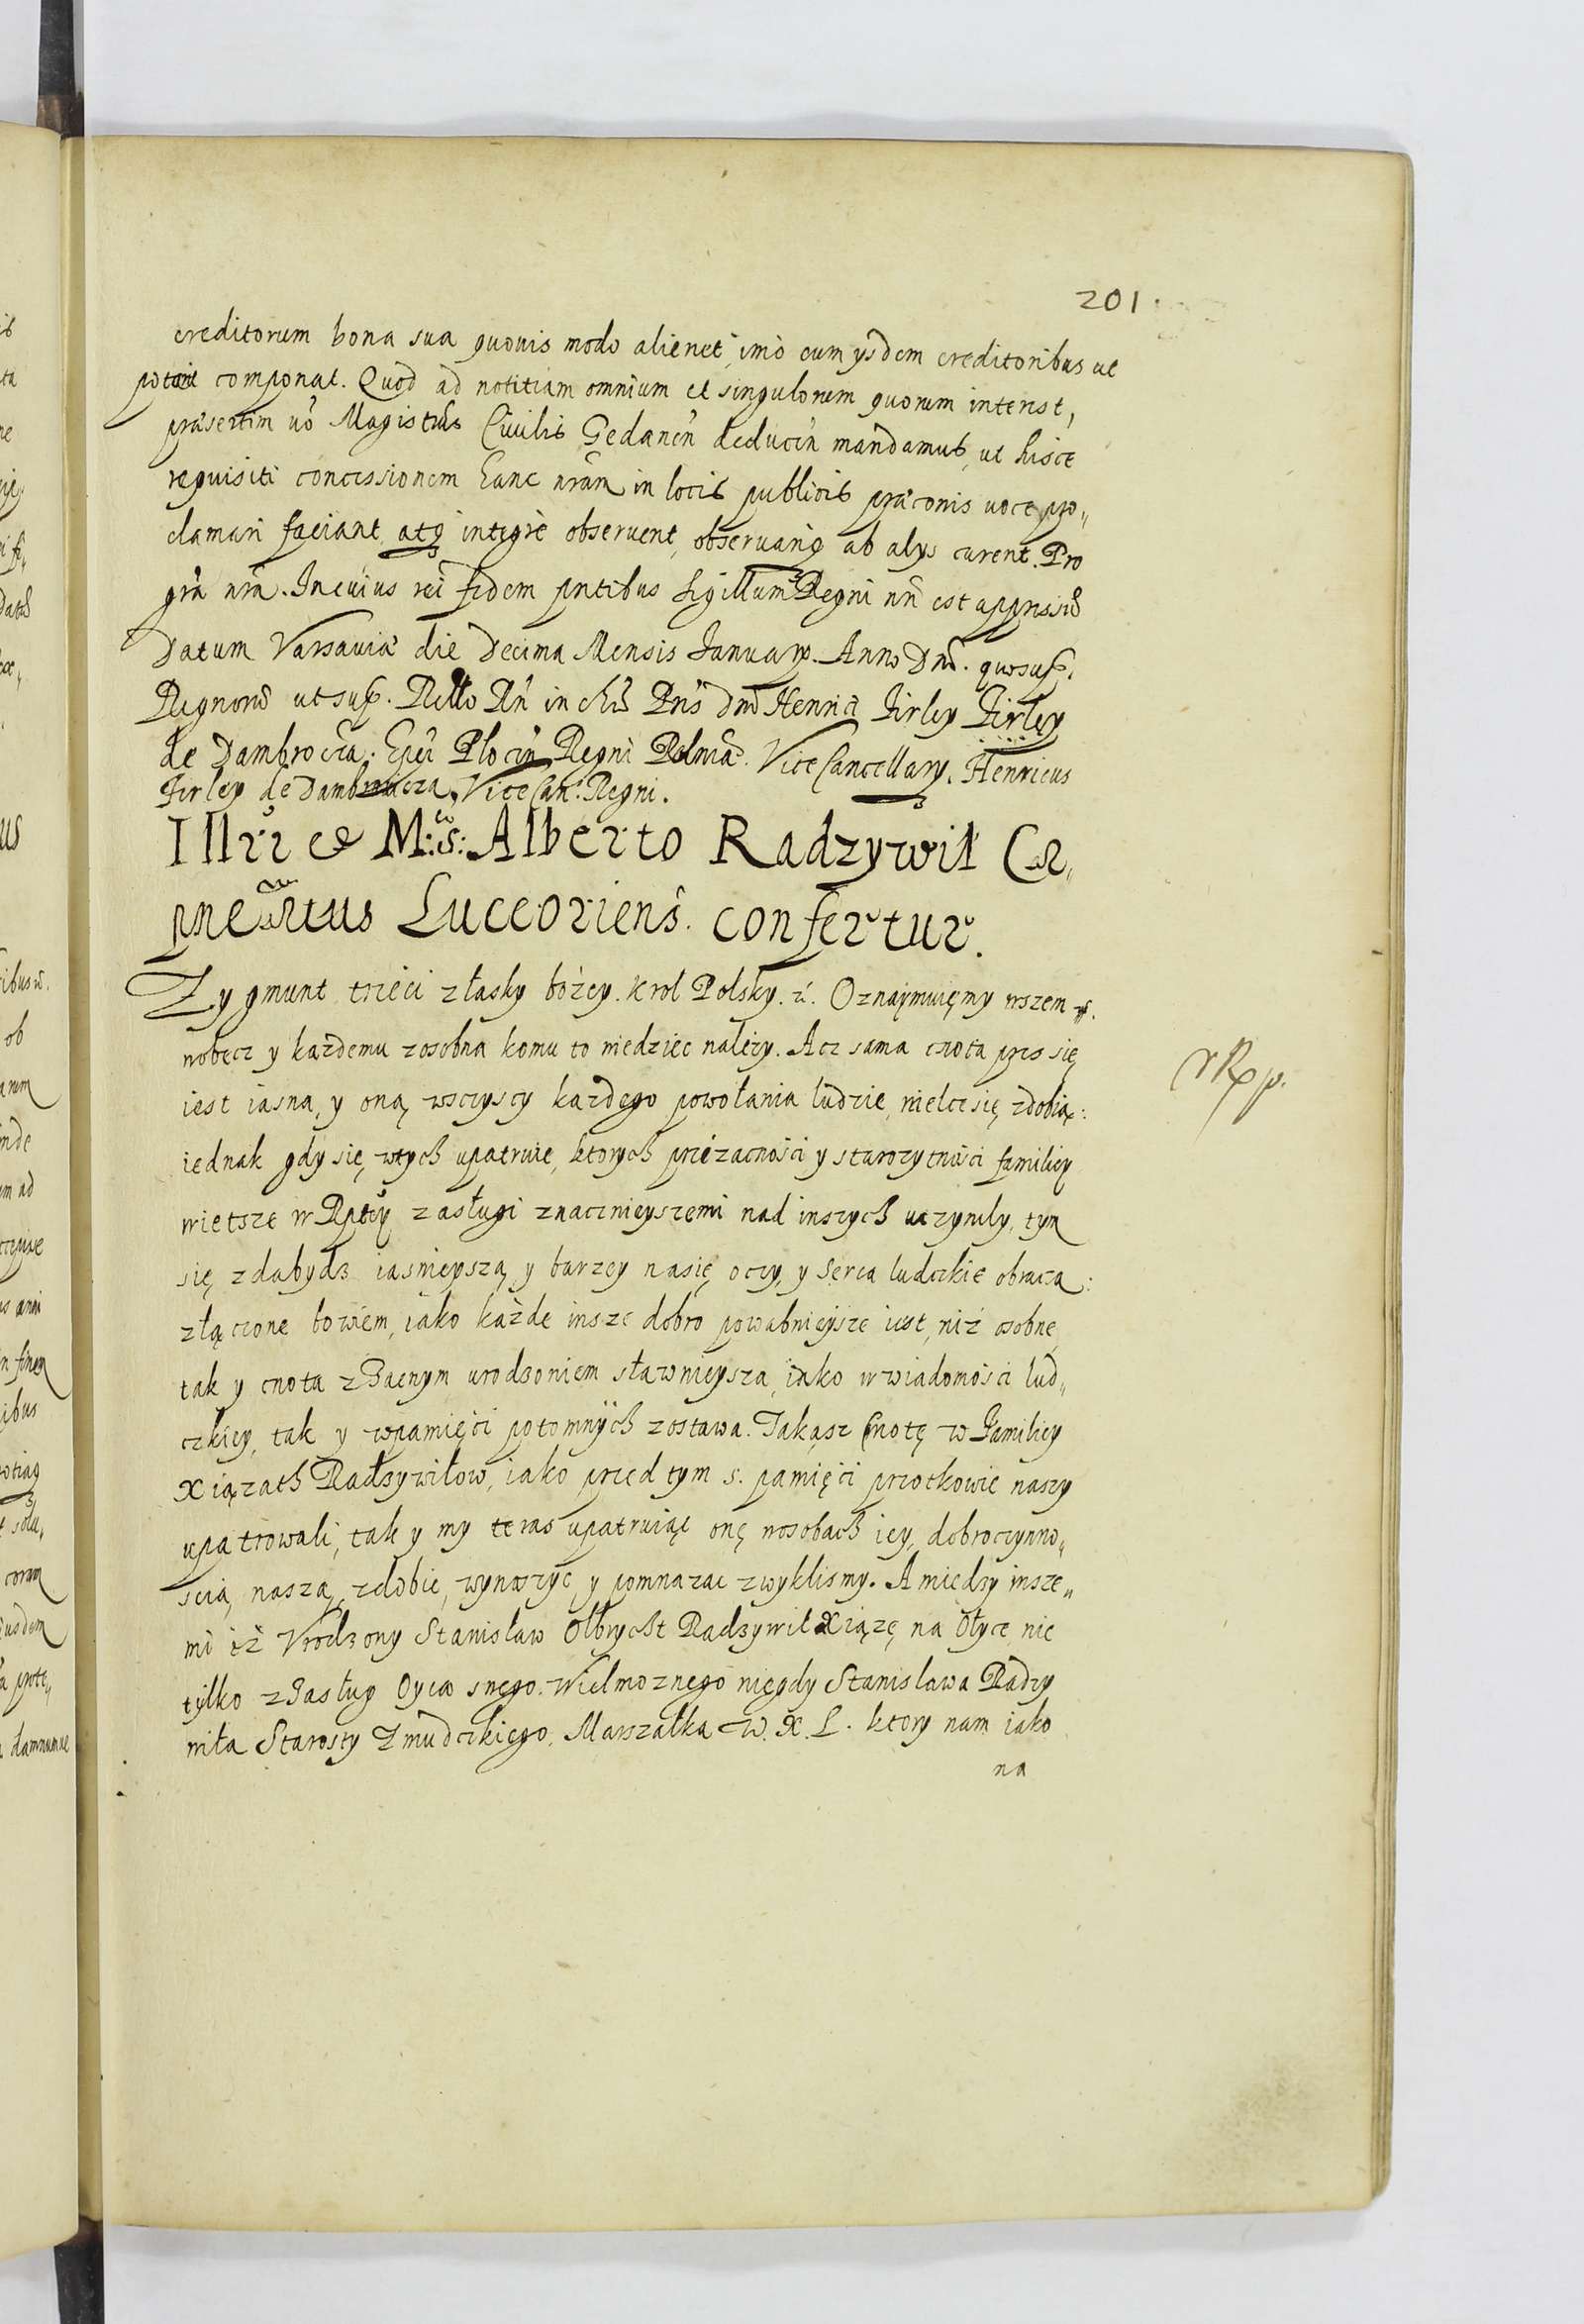 201.
creditorum bona sua quouis modo alienet, imò cum ysdem creditoribus ut
poterit componat. Quod ad notitiam omnium et singulorum quorum interest,
præsertim uō Magistrūs Ciuilis Gedanēn deducēn mandamus, ut hisce
requisiti concessionem hanc nrām in locis publicis præconis uoce pro„
clamari faciant, atq integrè obseruent, obseruariq ab alys curent. Pro
grā nrā. In cuius rei fidem pntibus Sigillum Regni nrī est appressū
Datum Varsauiæ die Decima Mensis January. Anno Dnī. quo sup.
Regnorū ut sup. Relto Rn̄ in chrō Pris Dnī Henrici Firley Firley
de Dambrocza. Epī Plocēn Regni Polniæ. Vice Cancellary. Henricus
Firley de Dambrowicza, Vice Can: Regni.
Illri et M:cō: Alberto Radzywił Ca„
pneatus Luceoriens. confertur.
Zygmunt trzeci z łasky bożey. Krol Polsky. rć. Oznaymuięmy wszem w.
wobecz y każdemu zosobna komu to wiedzieć należy. Acz sama cnota prze się
iest iasna, y oną, wsczyscy każdego powołania ludzie, wielce się zdobią:
iednak gdy się, wtych upatruie, ktorych przezacności y starożytności familiey
wietsze w Rptey zasługi znacznieyszemi nad inszych uczyniły, tym
się, zda bydz iasnieyszą, y barzey nasię, oczy, y serca ludczkie obraca:
złączone bowiem, iako każde insze dobro powabnieysze iest, niż osobne,
tak y cnota z zacnym urodzoniem sławnieysza, iako w wiadomości lud„
czkiey, tak y wpamięci potomnych zostawa. Takąsz Cnotę w Familiey
Xiążath Radzywiłow, iako przed tym s. pamięci przotkowie naszy
upatrowali, tak y my teras upatruiąc onę w osobach iey, dobroczynno„
scią, naszą, zdobić, wynoszyć, y pomnazac zwyklismy. A miedzy insze„
mi iż Vrodzony Stanisław Olbrycht Radzywił Xiążę na Ołyce, nie
tylko z zasług Oyca swego. Wielmoznego niegdy Stanislawa Radzy
wiła Starosty Zmudczkiego, Marszałka W. X. L. ktory nam iako
na